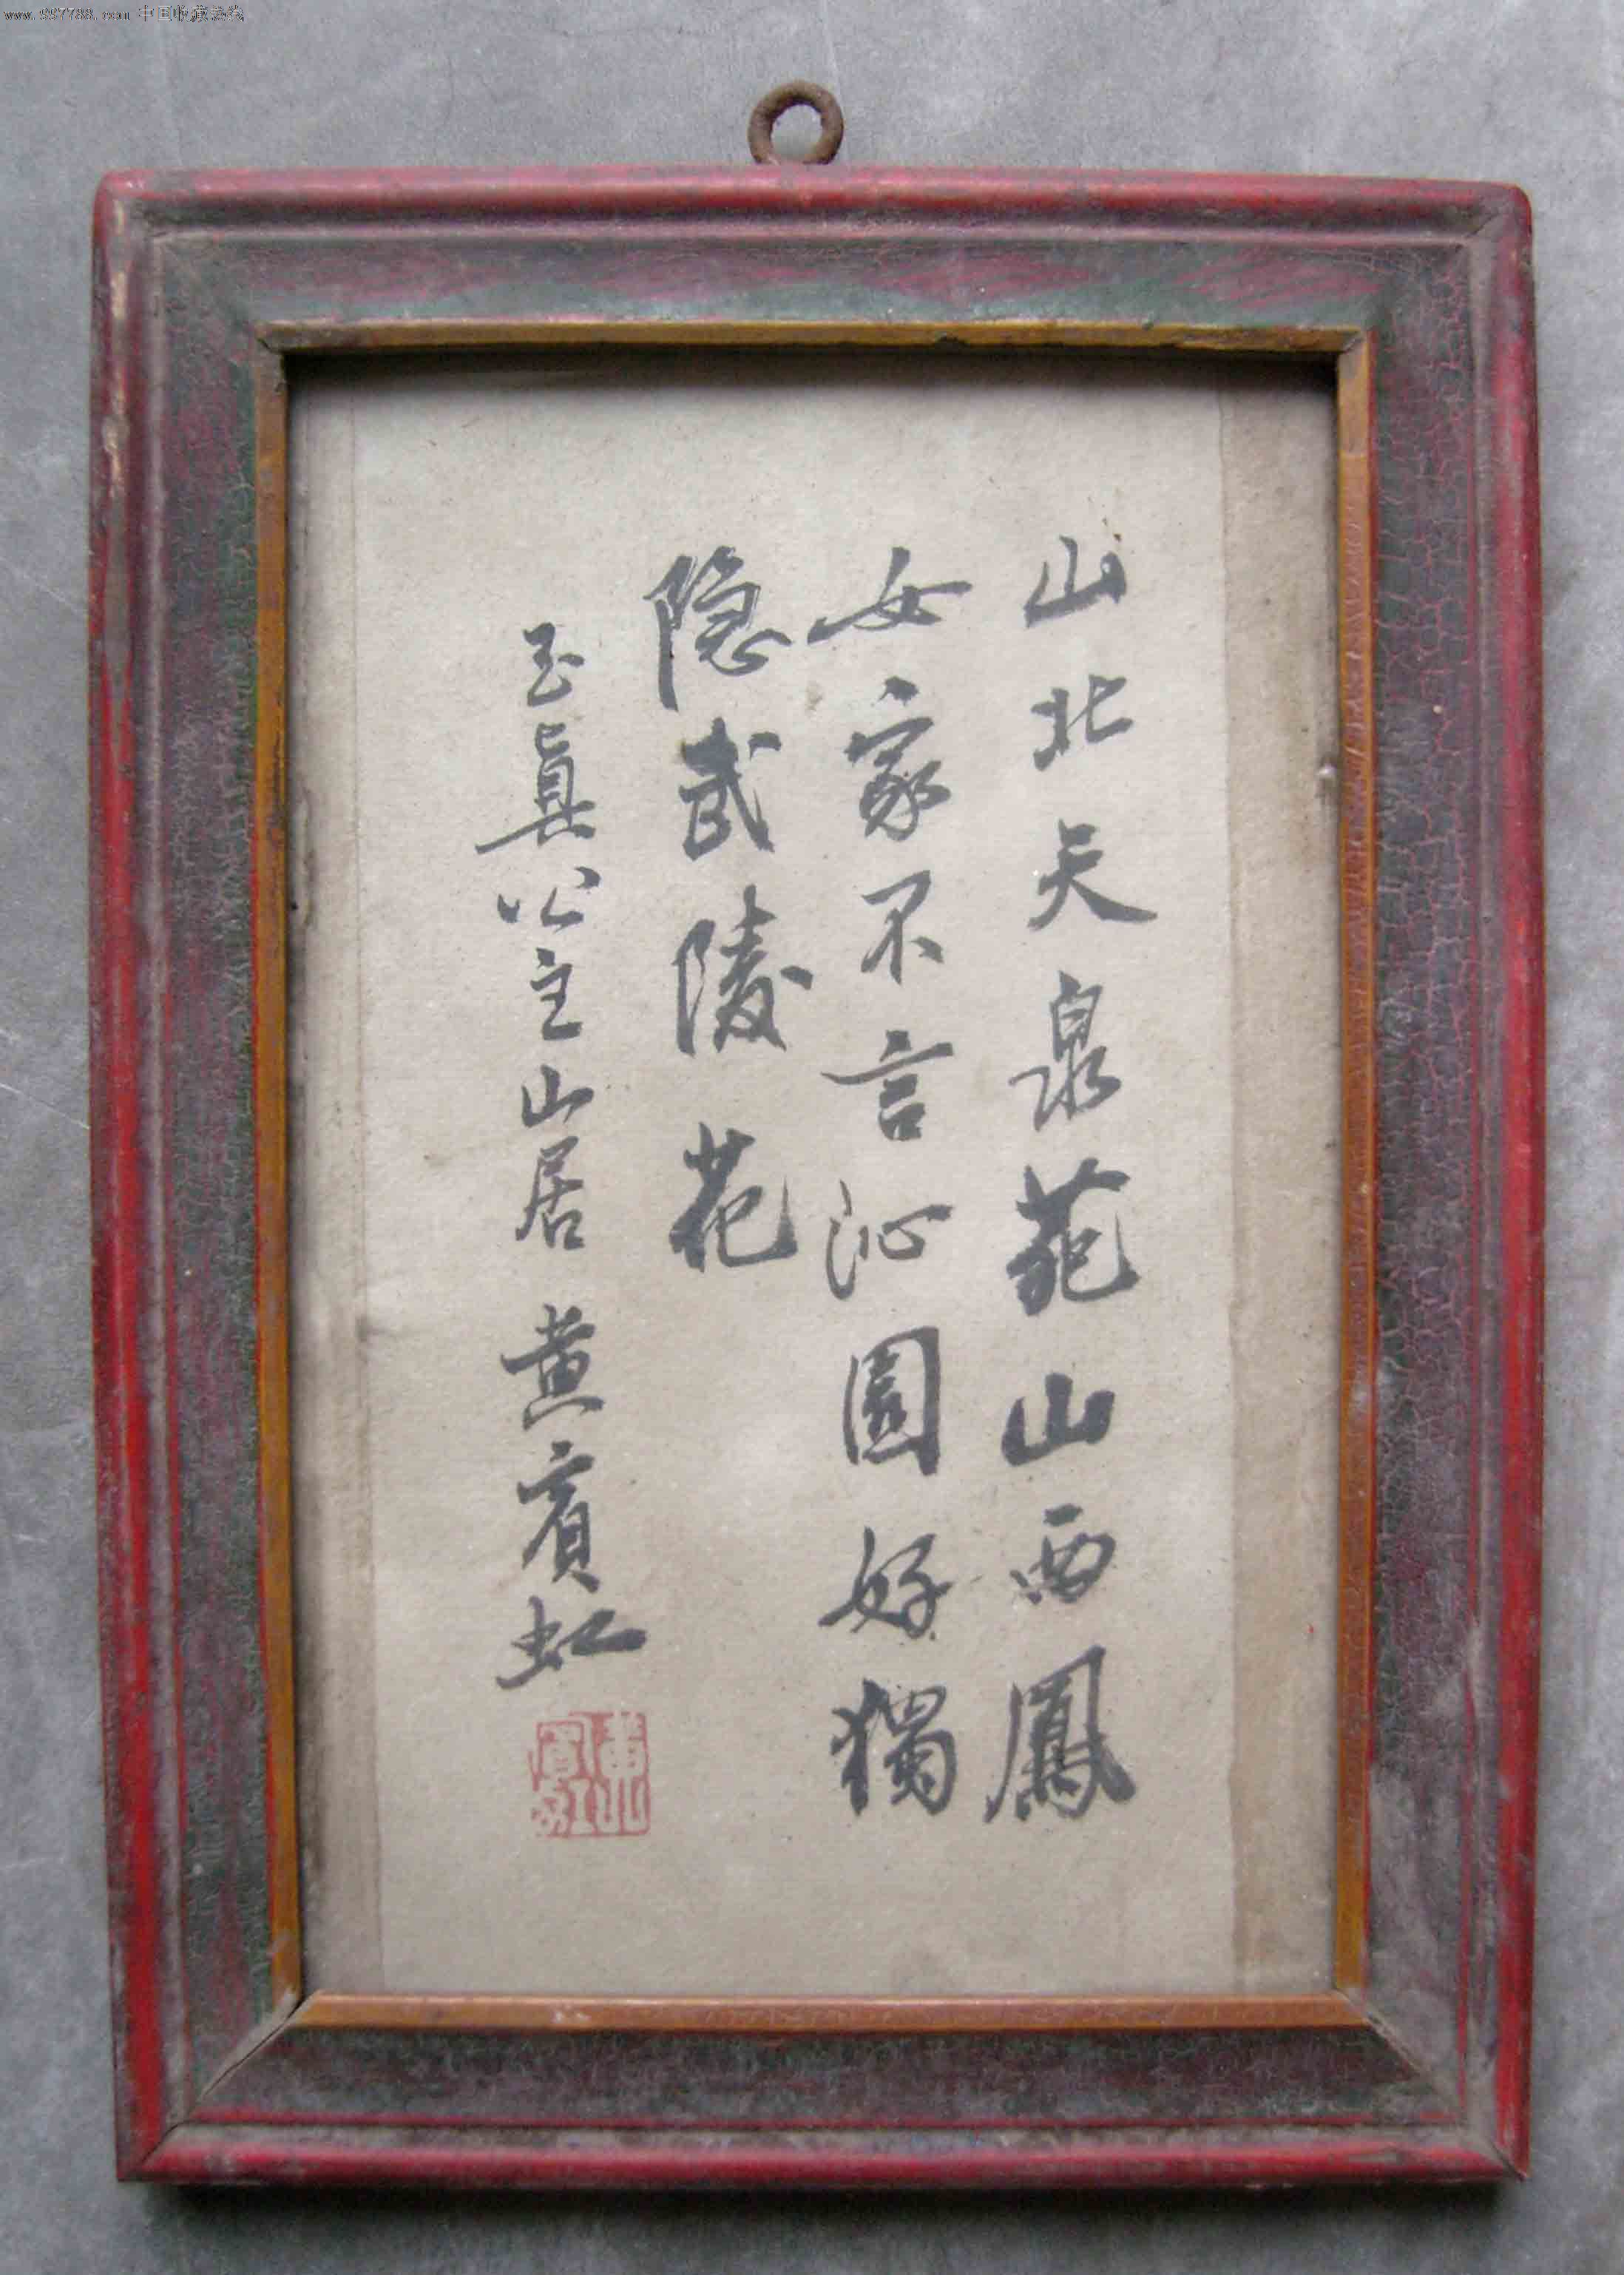 山北天泉苑山西鳳
女家不言沁園好獨
隐武陵花
玉真公主山居 黄賓虹
黄山賓虹
www.997788.com 中国收藏热线